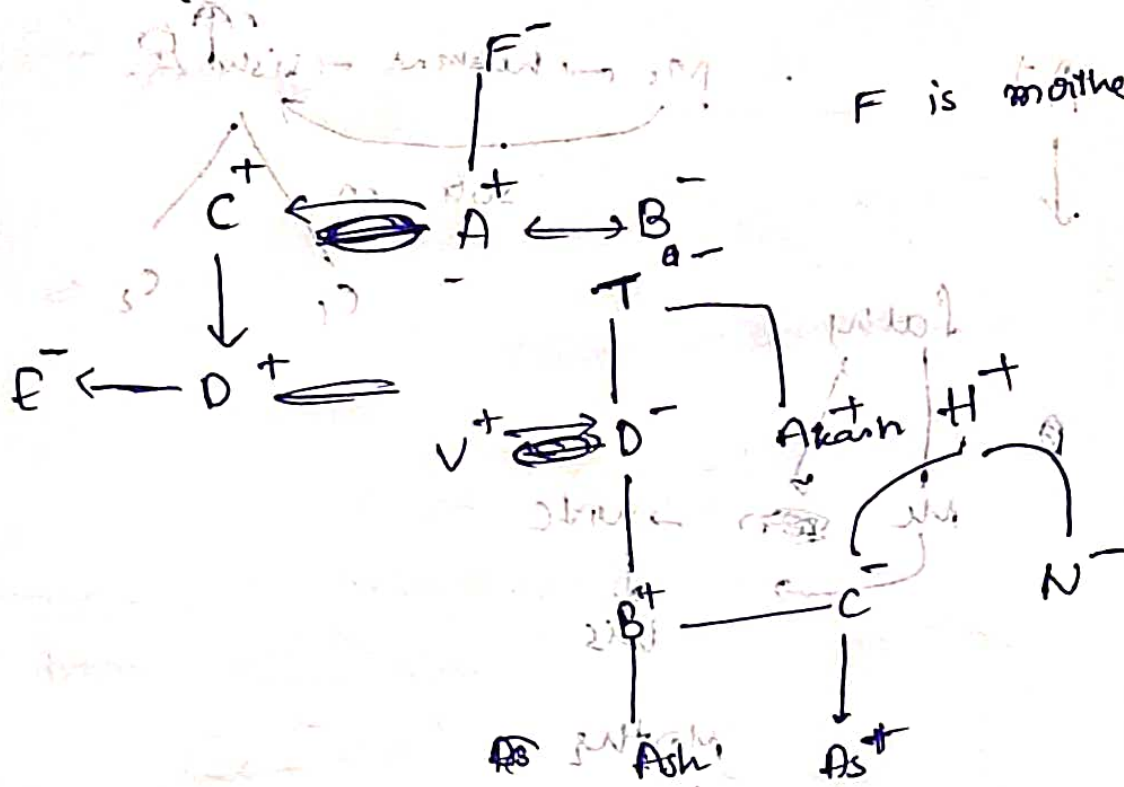 F⁻
F is mothe
C⁺ A⁺ B⁻
T⁻
E⁻ D⁺
V⁺ D⁻ Akash⁺ H⁺
N⁻
B⁺ C⁻
As Ash As⁺